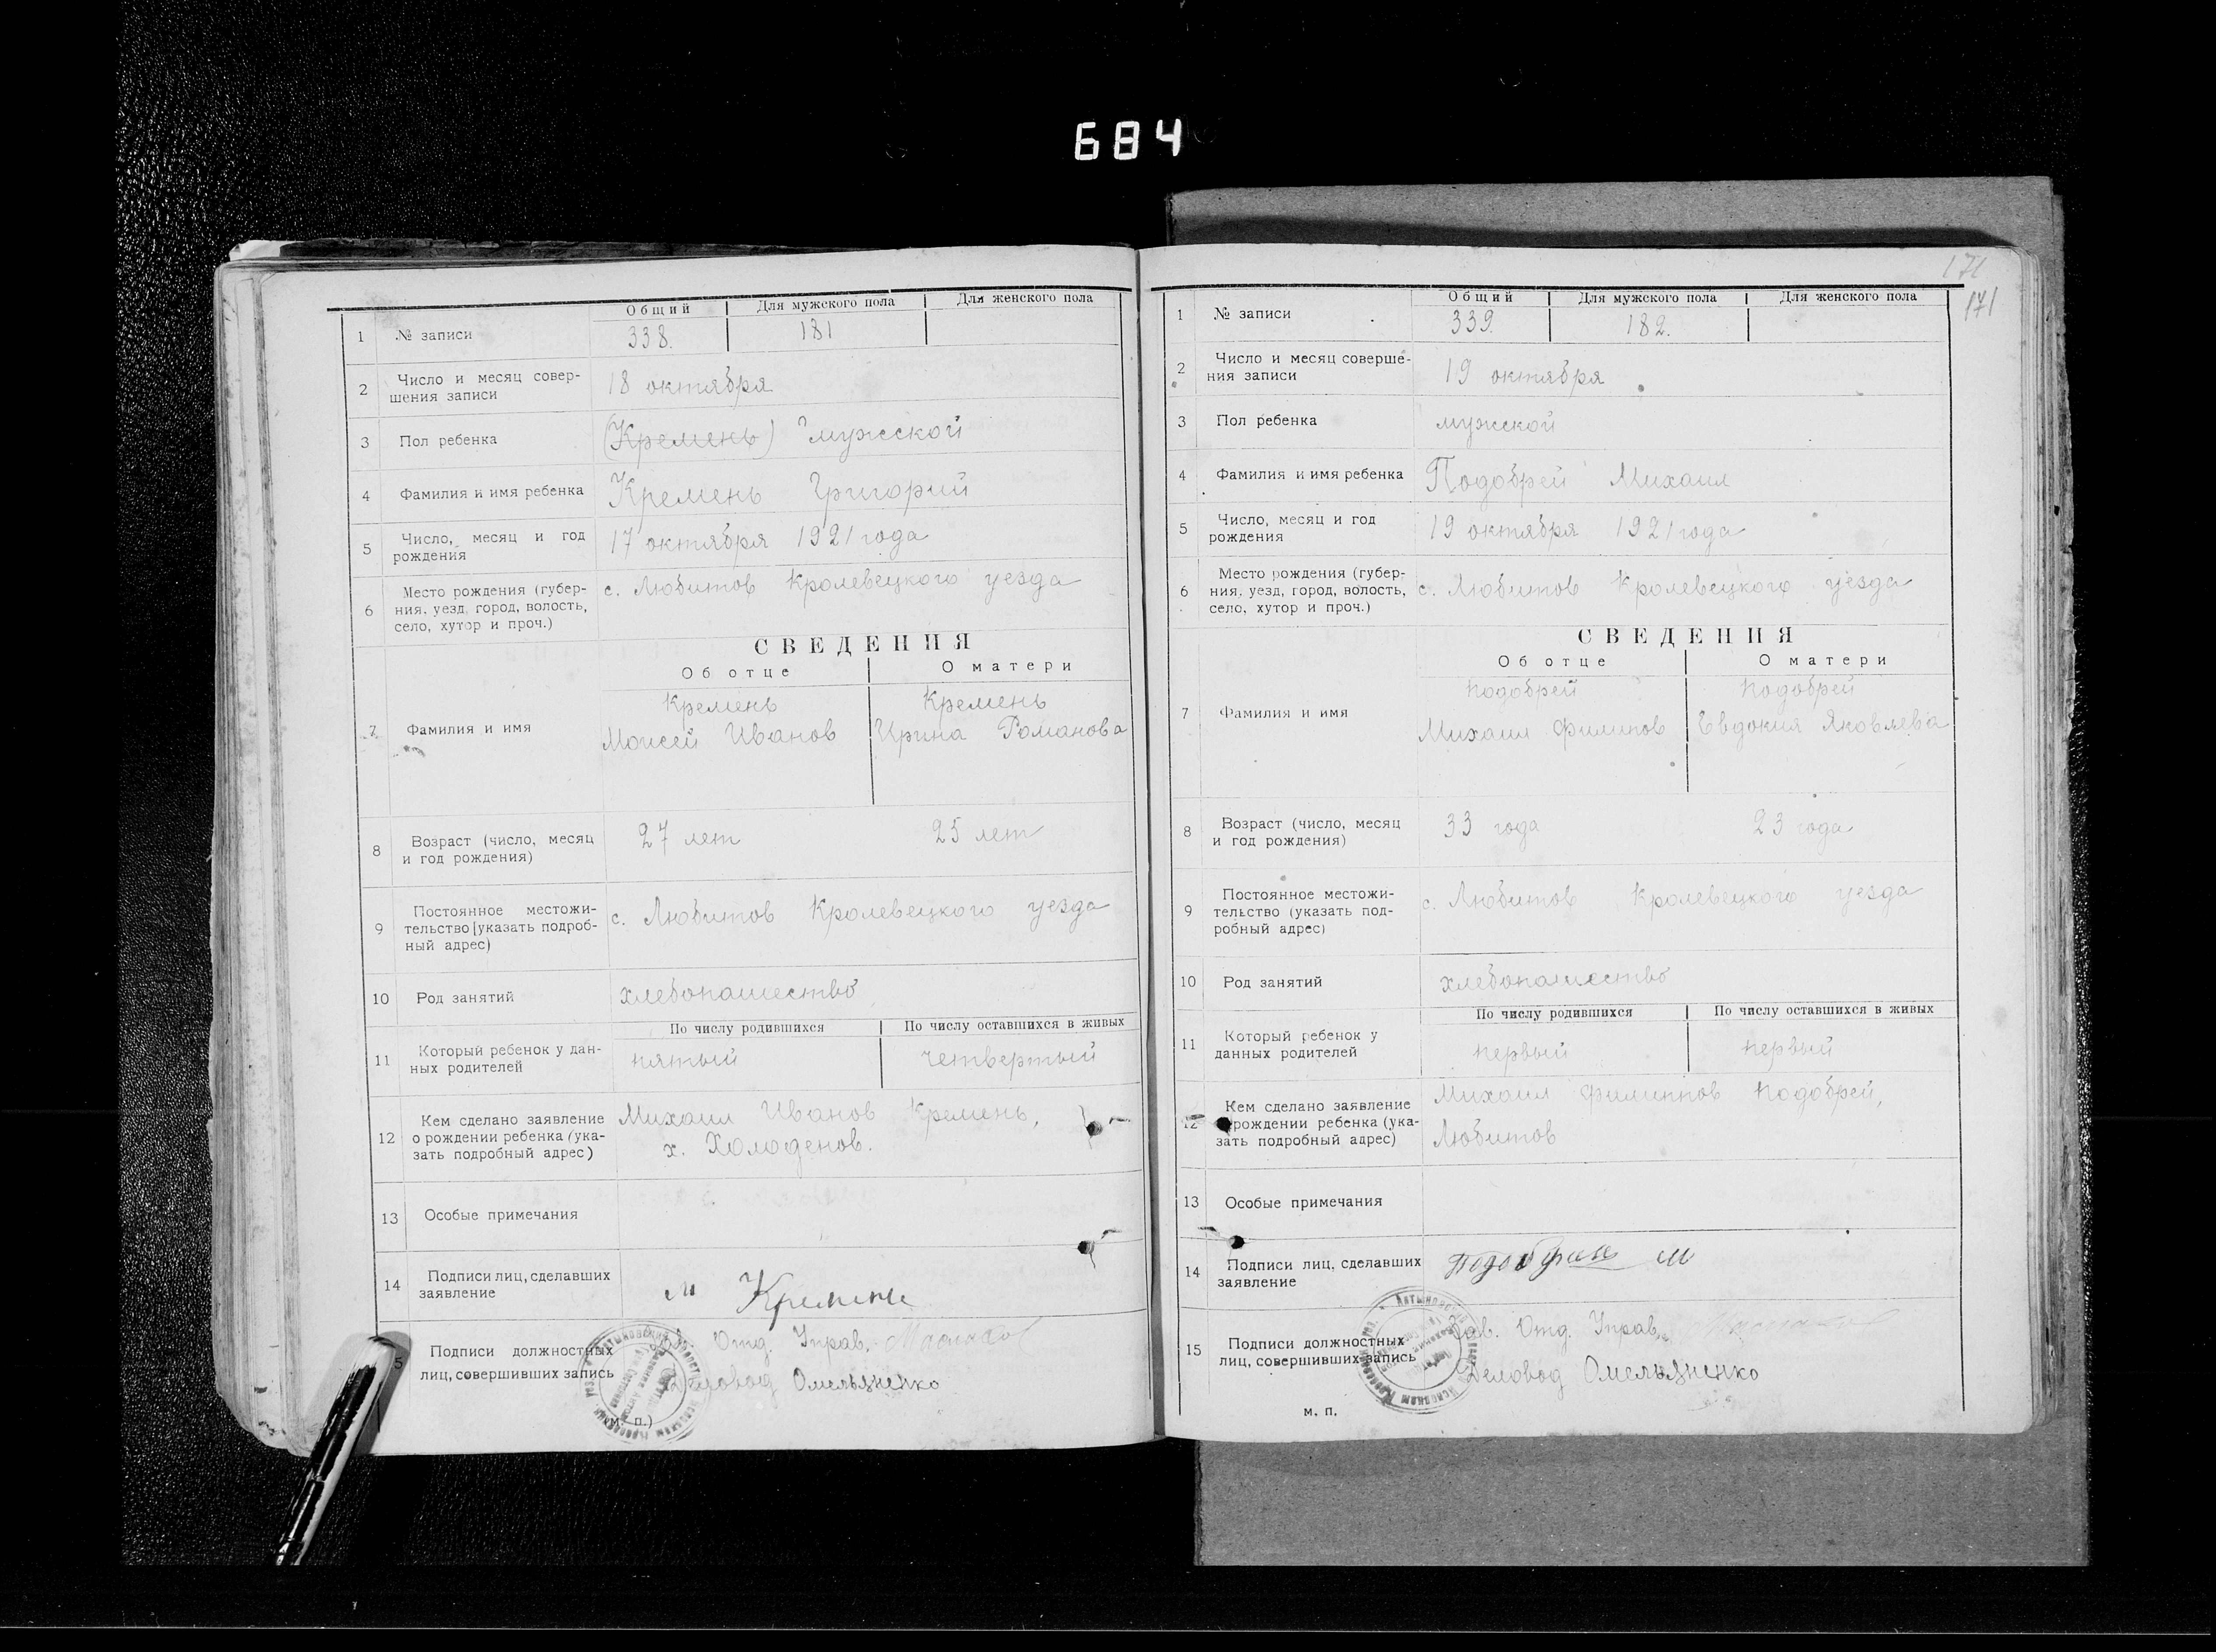 684
Общий Для мужского пола Для женского пола
1 № записи 338. 181
2 Число и месяц совер-
шения записи 18 октября
3 Пол ребенка (Кремень) мужской
4 Фамилия и имя ребенка Кремень Григорий
5 Число, месяц и год
рождения 17 октября 1921 года
6 Место рождения (губер-
ния, уезд, город, волость,
село, хутор и проч.) с. Любитов Кролевецкого уезда
СВЕДЕНИЯ
Об отце О матери
7 Фамилия и имя
Кремень Кремень
Моисей Иванов Ирина Романова
8 Возраст (число, месяц
и год рождения) 27 лет 25 лет
9 Постоянное местожи-
тельство [указать подроб-
ный адрес) с. Любитов Кролевецкого уезда
10 Род занятий хлебопашество
По числу родившихся По числу оставшихся в живых
11 Который ребенок у дан-
ных родителей пятый четвертый
12 Кем сделано заявление
о рождении ребенка (ука-
зать подробный адрес)
Михаил Иванов Кремень,
х. Холоденов.
13 Особые примечания
14 Подписи лиц, сделавших
заявление м Кремень
5 Подписи должностных
лиц, совершивших запись
Отд. Управ.
Деловод Омельяненко
(м. п.)
171
171
Общий Для мужского пола Для женского пола
1 № записи 339. 182.
2 Число и месяц соверше-
ния записи 19 октября
3 Пол ребенка мужской
4 Фамилия и имя ребенка Подобрей Михаил
5 Число, месяц и год
рождения 19 октября 1921 года
6 Место рождения (губер-
ния, уезд, город, волость,
село, хутор и проч.) с. Любитов Кролевецкого уезда
СВЕДЕНИЯ
Об отце О матери
7 Фамилия и имя
Подобрей Подобрей
Михаил Филипов Евдокия Яковлева
8 Возраст (число, месяц
и год рождения) 33 года 23 года
9 Постоянное местожи-
тельство (указать под-
робный адрес) с. Любитов Кролевецкого уезда
10 Род занятий хлебопашество
По числу родившихся По числу оставшихся в живых
11 Который ребенок у
данных родителей первый первый
12 Кем сделано заявление
рождении ребенка (ука-
зать подробный адрес)
Михаил Филиппов Подобрей,
Любитов
13 Особые примечания
14 Подписи лиц, сделавших
заявление м
15 Подписи должностных
лиц, совершивших запись
Зав. Отд. Управ.
Деловод Омельяненко
м. п.